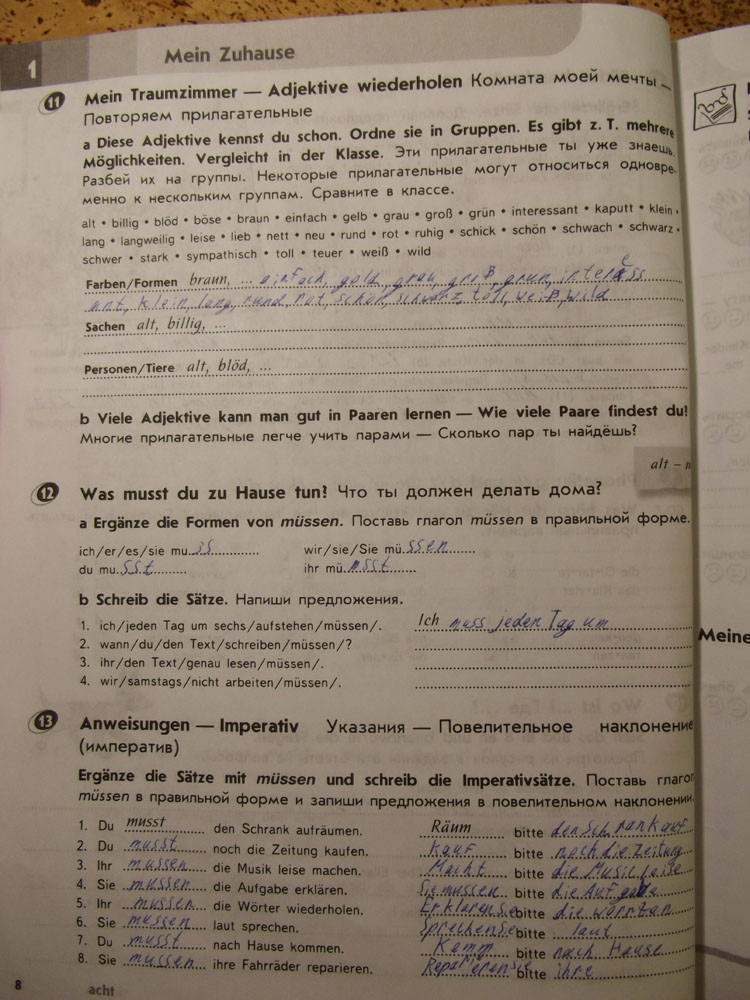 1 Mein Zuhause
11 Mein Traumzimmer — Adjektive wiederholen Комната моей мечты —
Повторяем прилагательные
a Diese Adjektive kennst du schon. Ordne sie in Gruppen. Es gibt z. T. mehrere
Möglichkeiten. Vergleicht in der Klasse. Эти прилагательные ты уже знаешь.
Разбей их на группы. Некоторые прилагательные могут относиться одновре-
менно к нескольким группам. Сравните в классе.
alt • billig • blöd • böse • braun • einfach • gelb • grau • groß • grün • interessant • kaputt • klein •
lang • langweilig • leise • lieb • nett • neu • rund • rot • ruhig • schick • schön • schwach • schwarz •
schwer • stark • sympathisch • toll • teuer • weiß • wild
Farben/Formen braun, ... einfach, gold, grau, groß, grun, interess
ant, klein, lang, rund, rot, schon, schwarz, toll, weiß, wild
Sachen alt, billig, ...
Personen/Tiere alt, blöd, ...
b Viele Adjektive kann man gut in Paaren lernen — Wie viele Paare findest du!
Многие прилагательные легче учить парами — Сколько пар ты найдёшь?
alt – n
12 Was musst du zu Hause tun? Что ты должен делать дома?
a Ergänze die Formen von müssen. Поставь глагол müssen в правильной форме.
ich/er/es/sie mu ss wir/sie/Sie mü ssen
du mu sst ihr mü sst
b Schreib die Sätze. Напиши предложения.
1. ich/jeden Tag um sechs/aufstehen/müssen/. Ich muss jeden Tag um
2. wann/du/den Text/schreiben/müssen/?
3. ihr/den Text/genau lesen/müssen/.
4. wir/samstags/nicht arbeiten/müssen/.
Meine
13 Anweisungen — Imperativ Указания — Повелительное наклонение
(императив)
Ergänze die Sätze mit müssen und schreib die Imperativsätze. Поставь глагол
müssen в правильной форме и запиши предложения в повелительном наклонении.
1. Du musst den Schrank aufräumen. Räum bitte den Schrank auf
2. Du musst noch die Zeitung kaufen. Kauf bitte noch die Zeitung
3. Ihr mussen die Musik leise machen. Macht bitte die Musik leise
4. Sie mussen die Aufgabe erklären. Sie mussen bitte die Aufgabe
5. Ihr mussen die Wörter wiederholen. Erklaren Sie bitte die
6. Sie mussen laut sprechen. Sprechen Sie bitte laut
7. Du musst nach Hause kommen. Komm bitte nach Hause
8. Sie mussen ihre Fahrräder reparieren. Reparieren Sie bitte ihre
8 acht